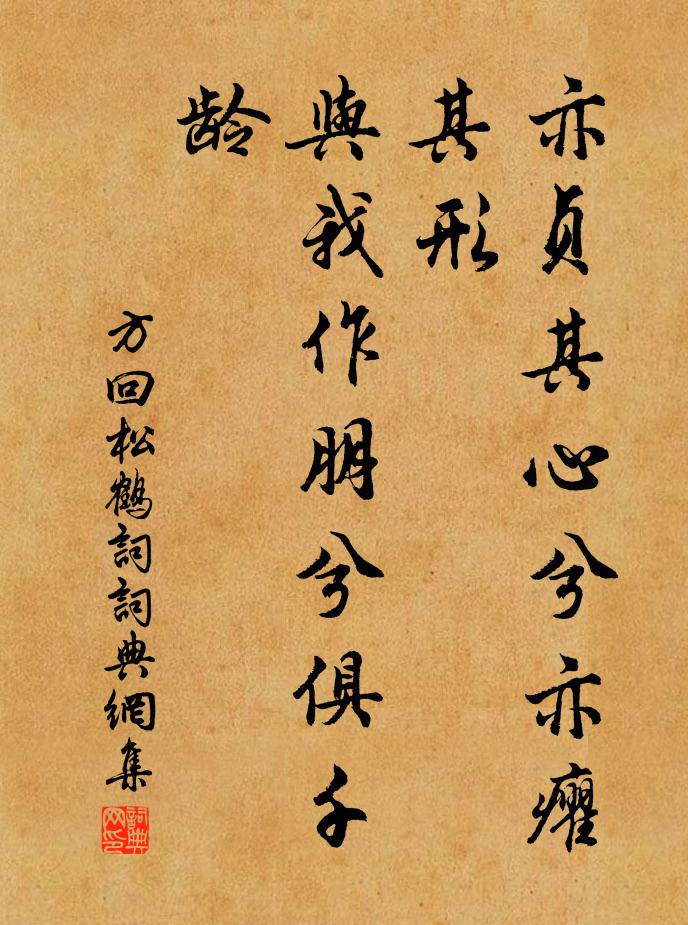 亦貞其心兮亦癯
其形
與我作朋兮俱千
龄
方回松鶴詞詞典網集
詞典
网印